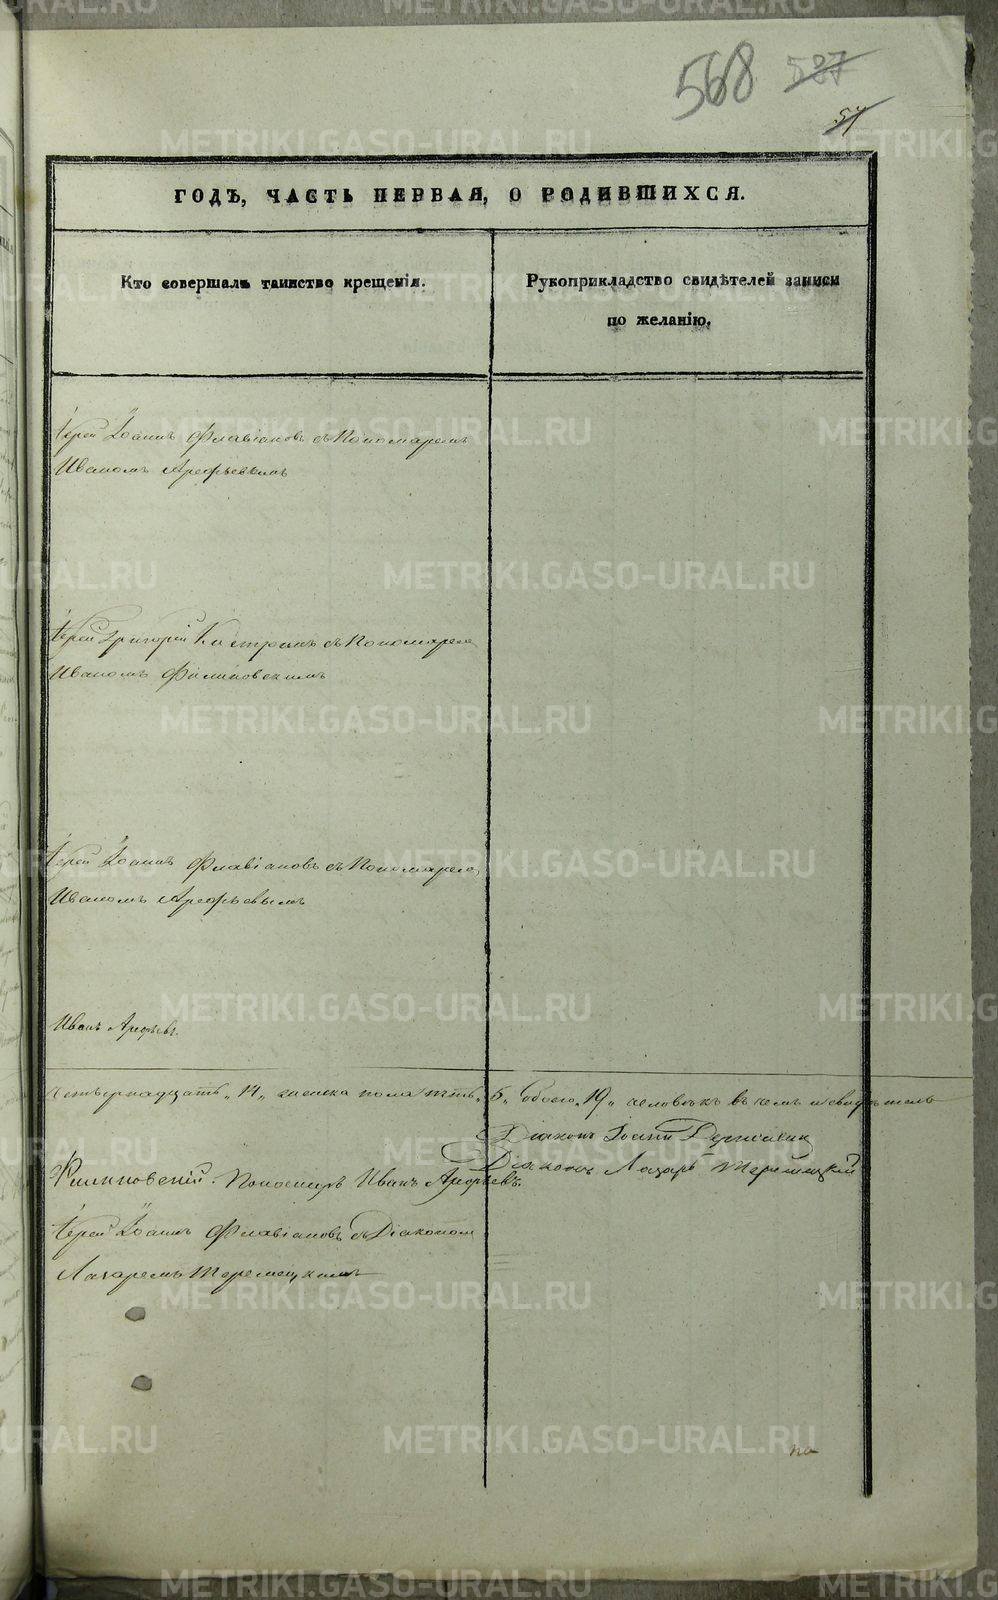 568 527
57
ГОДЪ, ЧАСТЬ ПЕРВАЯ, О РОДИВШИХСЯ.
Кто совершалъ таинство крещенія.
Рукоприкладство свидѣтелей записи
по желанію.
Іерей Іоаннъ Флавіановъ съ Пономаремъ
Иваномъ Арефьевымъ
Іерей Григорій Кастринъ съ Пономаремъ
Иваномъ Филиновскимъ
Іерей Іоаннъ Флавіановъ съ Пономаремъ
Иваномъ Арефьевымъ
Иванъ Арефьевъ.
четырнадцать „14„ женска пола пять „5„ Обоего „19„ человѣкъ въ чемъ и свидѣтель
Діаконъ Іоаннъ
Діаконъ Лазарь Теремецкій
Филиновскій. Пономарь Иванъ Арефьевъ.
Іерей Іоаннъ Флавіановъ съ Діакономъ
Лазаремъ Теремецкимъ
METRIKI.GASO-URAL.RU